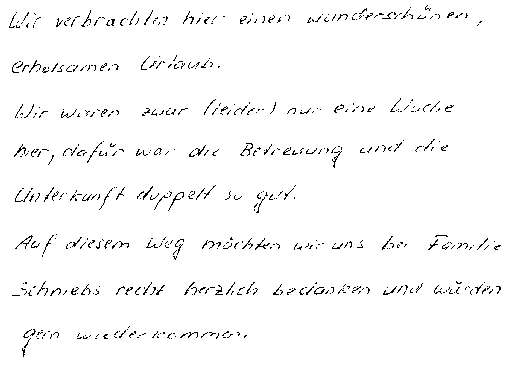 Wir verbrachten hier einen wunderschönen,
erholsamen Urlaub.
Wir waren zwar (leider) nur eine Woche
hier, dafür war die Betreuung und die
Unterkunft doppelt so gut.
Auf diesem Weg möchten wir uns bei Familie
recht herzlich bedanken und würden
gern wiederkommen.